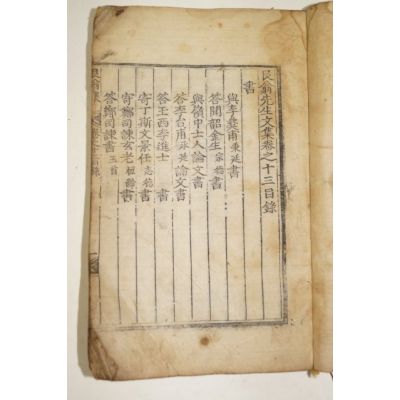 艮翁先生文集卷之十三目錄
書
與李葵甫秉延書
答聞韶金生宗德書
與嶺中士人論文書
答李台甫秉延論文書
答王西李進士書
寄丁斯文景任志德書
寄鄭司諫玄老書
答鄭司諫書五首